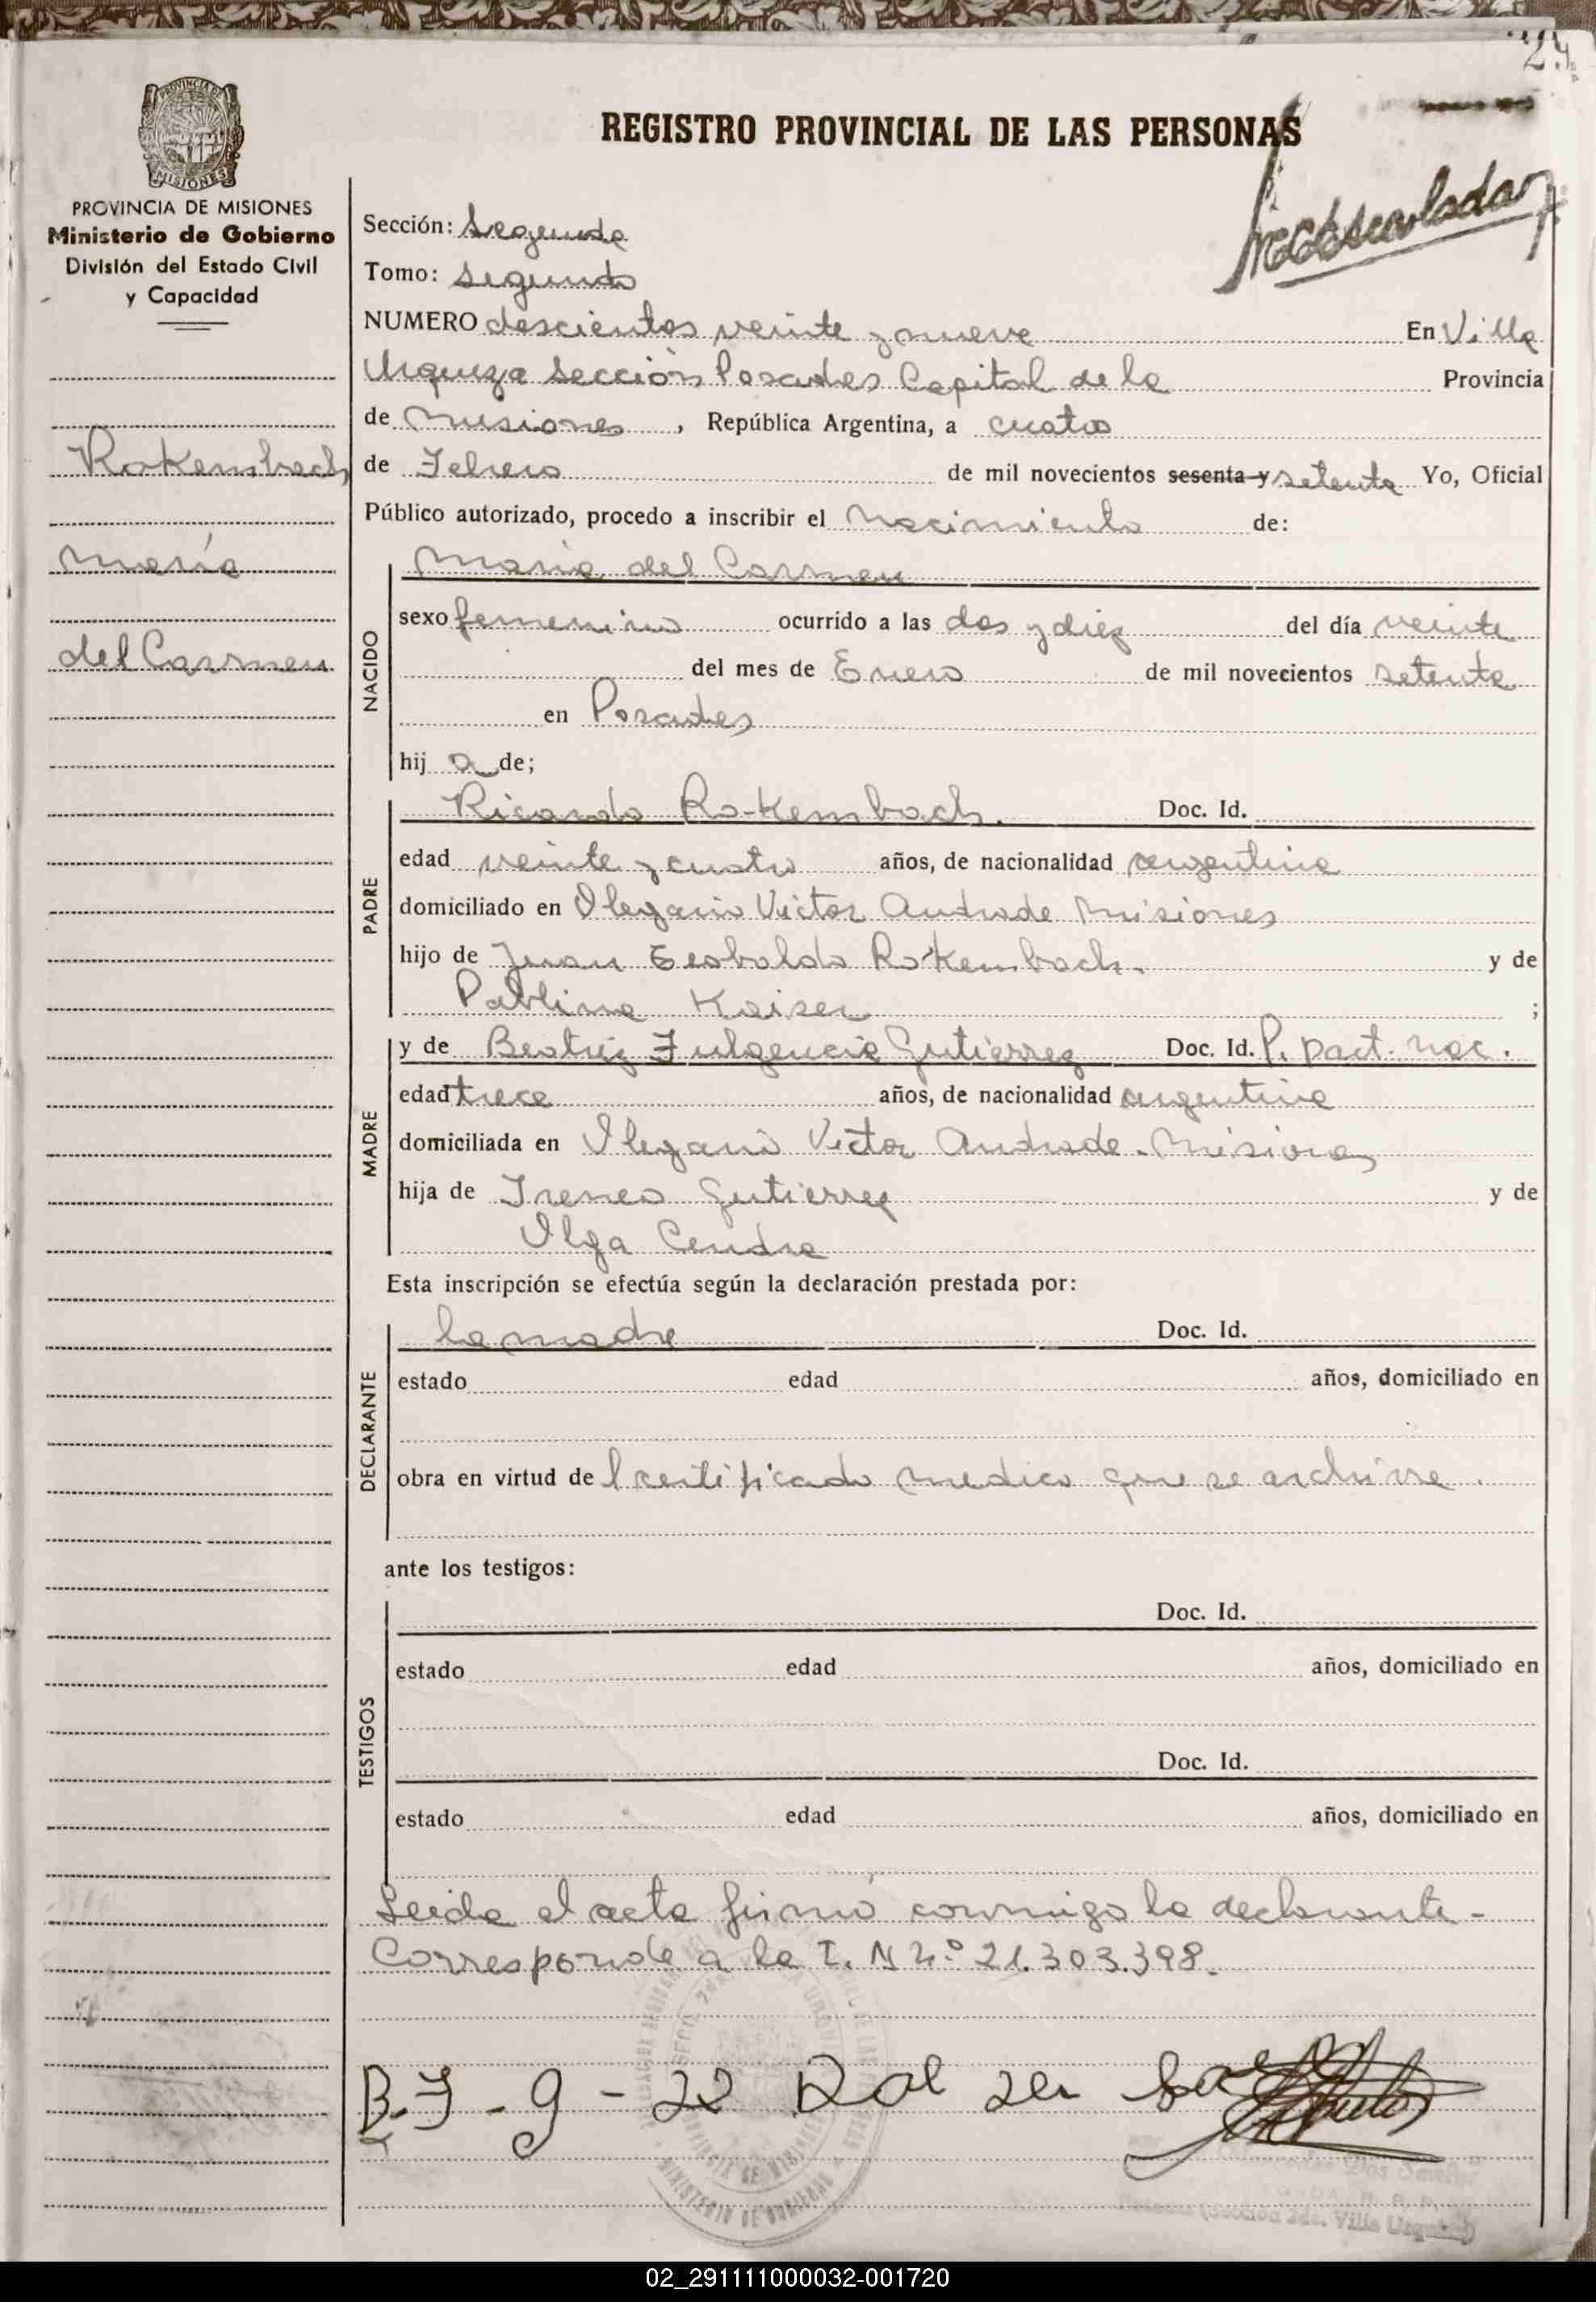 24
PROVINCIA DE
MISIONES
PROVINCIA DE MISIONES
Ministerio de Gobierno
División del Estado Civil
y Capacidad
Rokembach
María
del Carmen
REGISTRO PROVINCIAL DE LAS PERSONAS
Sección: Segunda
Tomo: Segundo
NUMERO doscientos veinte y nueve En Villa
Urquiza Sección Posadas Capital de la Provincia
de Misiones, República Argentina, a cuatro
de Febrero de mil novecientos sesenta y setenta Yo, Oficial
Público autorizado, procedo a inscribir el Nacimiento de:
NACIDO
María del Carmen
sexo femenino ocurrido a las dos y diez del día veinte
del mes de Enero de mil novecientos setenta
en Posadas
hij a de;
PADRE
Ricardo Rokembach. Doc. Id.
edad veinte y cuatro años, de nacionalidad argentina
domiciliado en Olegario Victor Andrade Misiones
hijo de Juan Teobaldo Rokembach. y de
Pablina Kaiser ;
MADRE
y de Beatriz Fulgencia Gutierrez Doc. Id. P. part. nac.
edad trece años, de nacionalidad argentina
domiciliada en Olegario Victor Andrade. Misiones
hija de Ireneo Gutierrez y de
Olga Cendra
Esta inscripción se efectúa según la declaración prestada por:
DECLARANTE
la madre Doc. Id.
estado edad años, domiciliado en
obra en virtud de l certificado medico que se archiva.
ante los testigos:
TESTIGOS
Doc. Id.
estado edad años, domiciliado en
Doc. Id.
estado edad años, domiciliado en
Leida el acta firmó conmigo la declarante -
Corresponde a la I. N n.º 21.303.398.
B. J - 9 - 22
MINISTERIO DE GOBIERNO
Dos Santos
Posadas (Sección 2da. Villa Urquiza)
02_291111000032-001720